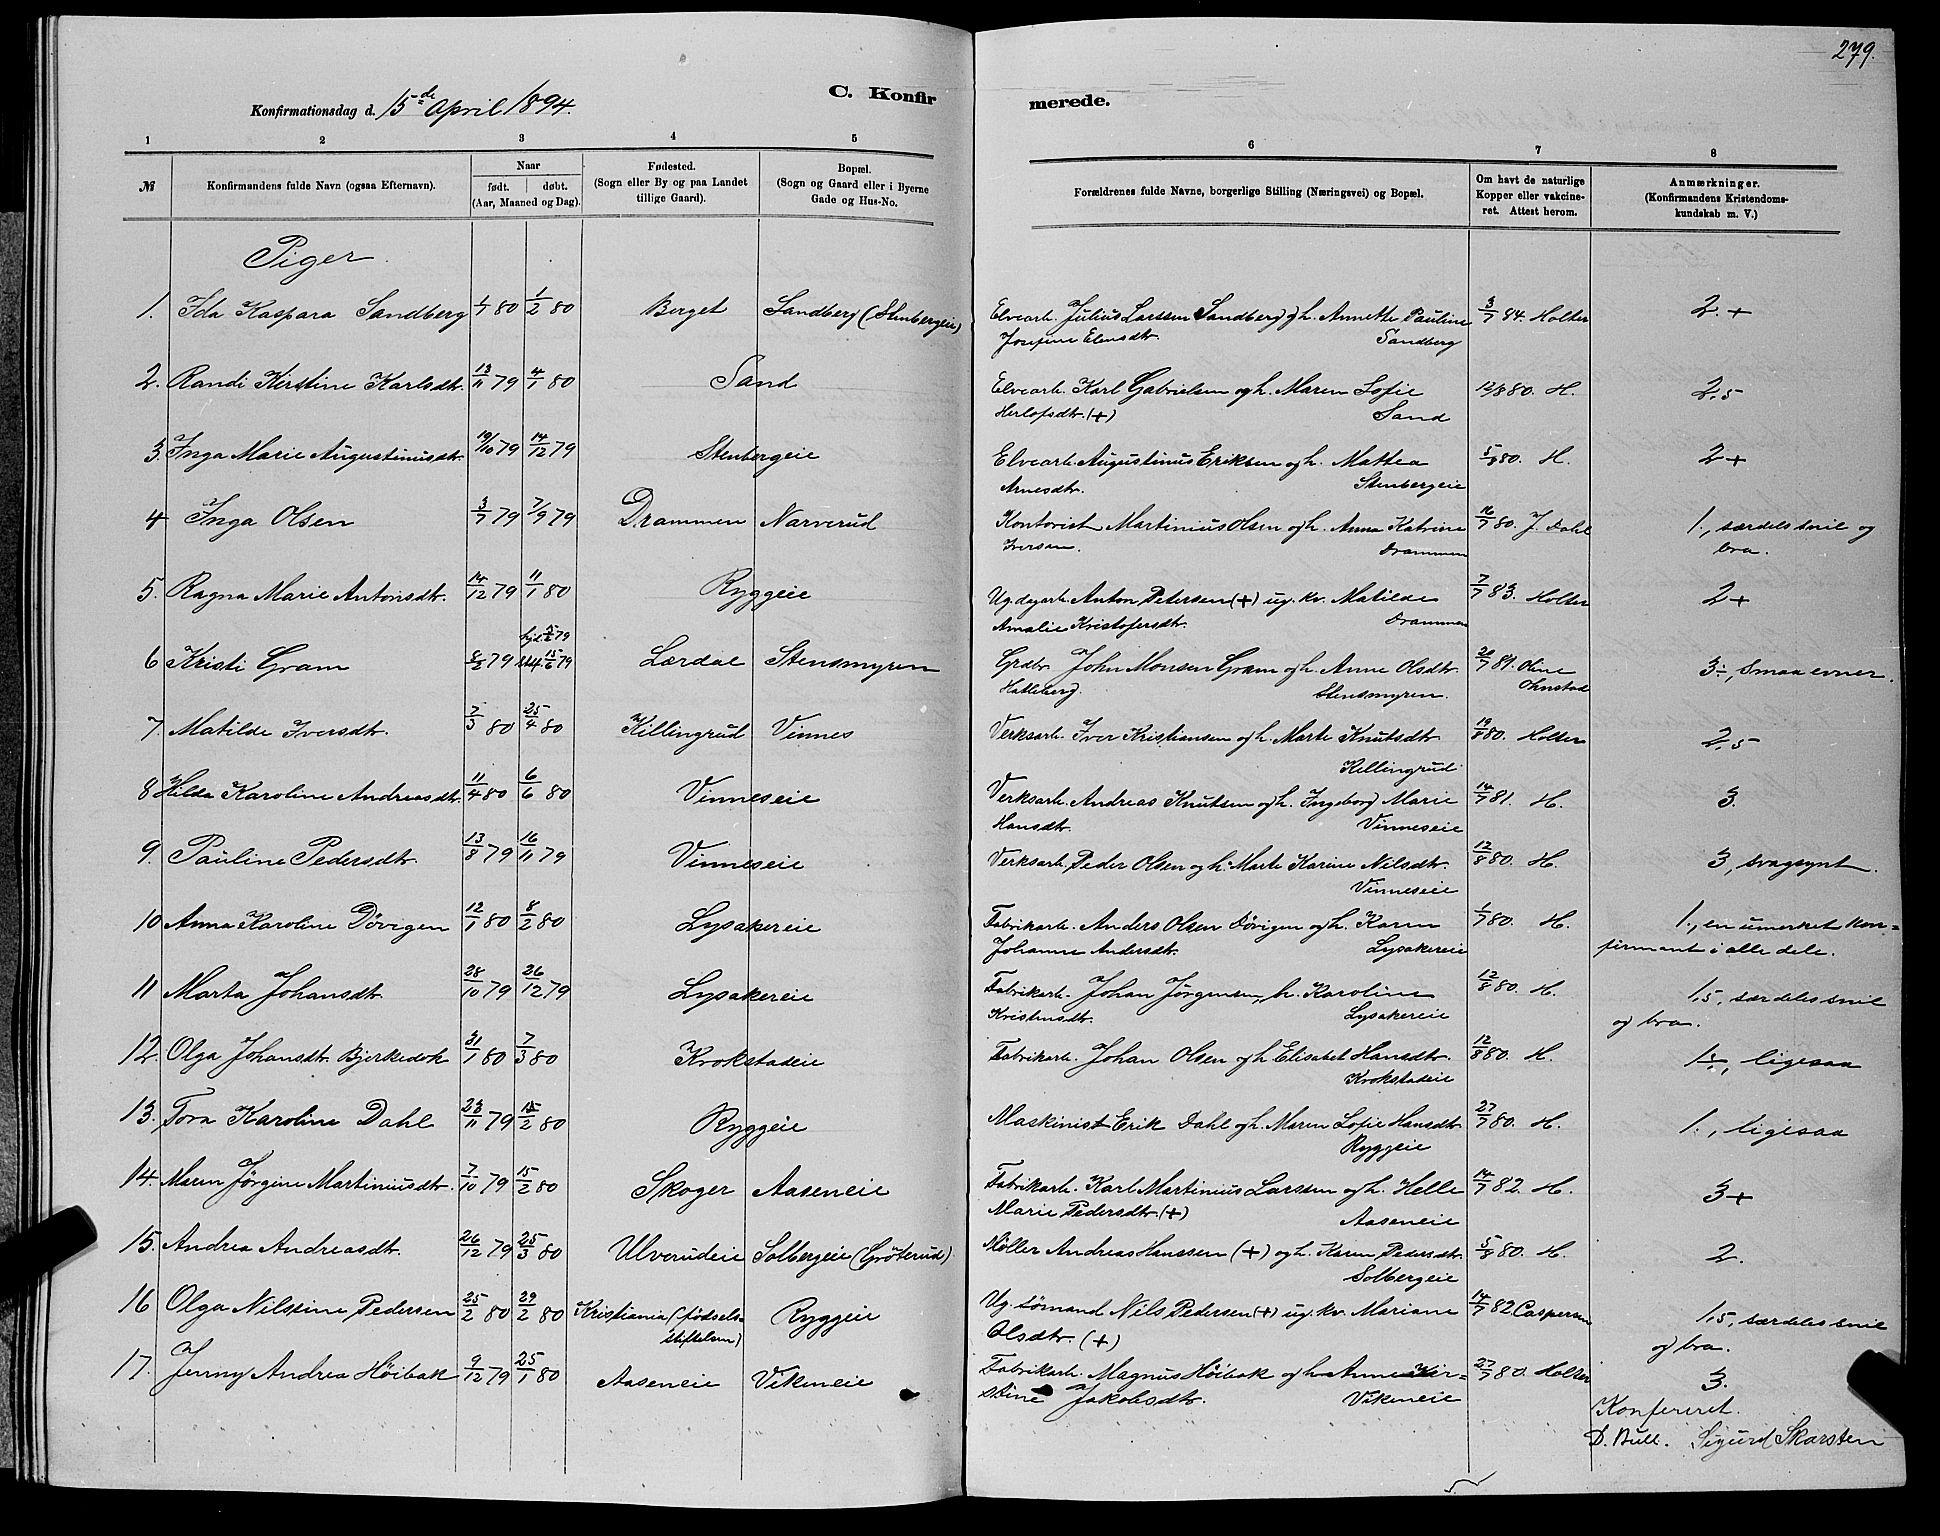 279.
Konfirmationsdag d. 15de April 1894.
C. Konfir
merede.
1 2 3 4 5 6 7 8
№ Konfirmandens fulde Navn (ogsaa Efternavn). Naar født. døbt. (Aar, Maaned og Dag). Fødested. (Sogn eller By og paa Landet tillige Gaard). Bopæl. (Sogn og Gaard eller i Byerne Gade og Hus-No. Forældrenes fulde Navne, borgerlige Stilling (Næringsvei) og Bopæl. Om havt de naturlige Kopper eller vakcineret. Attest herom. Anmærkninger. (Konfirmandens Kristendomskundskab m. V.)
Piger.
1. Ida Kaspara Sandberg 1/1 80 1/2 80 Berget Sandberg (Stenbergeie) Elvearb. Julius Larssen Sandberg og h. Annette Pauline 3/7 84. Holter 2.+
Josefine Elensdtr. Sandberg
2. Randi Kirstine Karlsdt. 13/11 79 4/1 80 Sand Elvearb. Karl Gabrielsen og h. Maren Sofie 12/8 80. H. 2,5
Herlofsdtr. (+) Sand
3. Inga Marie Augustinusdt. 19/10 79 14/12 79 Stenbergeie Elvearb. Augustinus Eriksen og h. Mattea 5/8 80. H. 2+
Arnesdtr. Stenbergeie
4 Inga Olsen 3/7 79 7/9 79 Drammen Narverud Kontorist Martinius Olsen og h. Anna Katrine 16/7 80. J. Dahl 1., særdeles snil og
Iversen. Drammen bra.
5. Ragna Marie Antonsdtr. 14/12 79 11/1 80 Ryggeie Ug. dgarb. Anton Petersen (+) ug. kv. Matilde 7/7 83. Holter 2+
Amalie Kristofersdtr. Drammen
6 Kristi Gram 8/2 79 15/6 79 Lærdal Stensmyren Grdbr. John Monsen Gram og h. Anne Olsdtr. 20/7 81. Oline 3÷, smaa evner.
Hatleberg. Stensmyren. Ohnstad
7. Matilde Iversdtr. 7/3 80 25/4 80 Killingrud Vinnes Verksarb. Iver Kristiansen og h. Marte Knutsdtr. 19/8 80. Holter 2,5
Killingrud.
8 Hilda Karoline Andreasdtr. 11/4 80 6/6 80 Vinneseie Verksarb. Andreas Knutsen og h. Ingeborg Marie 14/7 81. H. 3.
Hansdtr. Vinneseie
9. Pauline Pedersdtr. 13/8 79 16/11 79 Vinneseie Verksarb. Peder Olsen og h. Marte Karine Nilsdtr. 12/8 80. H. 3, svagsynt.
Vinneseie
10 Anna Karoline Dövigen 12/1 80 8/2 80 Lysakereie Fabrikarb. Anders Olsen Dövigen og h. Karen 1/7 80. H. 1., en umerket kon-
Johanne Andersdtr. Lysakereie firmant i alle dele.
11 Marta Johansdtr. 28/10 79 26/12 79 Lysakereie Fabrikarb. Johan Jørgensen, h. Karoline 12/8 80. H. 1,5, særdeles snil
Kristensdtr. Lysakereie og bra.
12. Olga Johansdtr. Bjerkedok 31/1 80 7/3 80 Krokstadeie Fabrikarb. Johan Olsen og h. Elisabet Hansdtr. 12/8 80. H. 1÷, ligesaa
Krokstadeie
13. Tora Karoline Dahl 23/11 79 15/2 80 Ryggeie Maskinist Erik Dahl og h. Maren Sofie Hansdtr. 27/7 80. H. 1., ligesaa
Ryggeie
14. Maren Jørgine Martiniusdtr. 7/10 79 15/2 80 Skoger Aaseneie Fabrikarb. Karl Martinius Larssen og h. Helle 14/7 82. H. 3+
Marie Pedersdtr. (+) Aaseneie
15. Andrea Andreasdtr. 26/12 79 25/3 80 Ulverudeie Solbergeie (Gröterud) Møller Andreas Hanssen (+) og h. Karen Pedersdtr. 5/8 80. H. 2.
Solbergeie
16 Olga Nilssine Pedersen 25/2 80 29/2 80 Kristiania (fødsels- Ryggeie Ug. sømand Nils Pedersen (+) ug. kv. Mariane 14/7 82 Caspersen 1,5, særdeles snil
stiftelsen) Olsdtr. (+) og bra.
17. Jenny Andrea Höibak 9/12 79 25/1 80 Aaseneie Vikeneie Fabrikarb. Magnus Höibak og h. Anne Kir- 27/7 80. Holter 3.
stine Jakobsdtr. Vikeneie
Konfereret.
D. Bull. Sigurd Skarsten